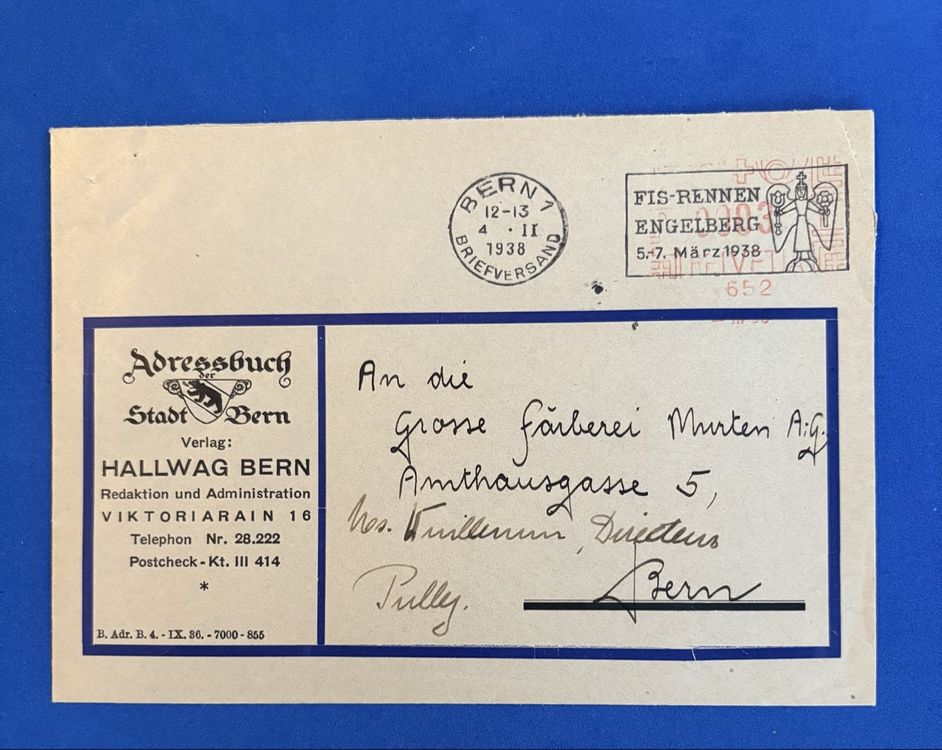 BERN 1
12-13
4 · II
1938
BRIEFVERSAND
FIS-RENNEN
ENGELBERG
5.-7. März 1938
HELVETIA
652
Adressbuch
der
Stadt Bern
Verlag:
HALLWAG BERN
Redaktion und Administration
VIKTORIARAIN 16
Telephon Nr. 28.222
Postcheck-Kt. III 414
*
B. Adr. B. 4. - IX. 36. - 7000 - 855
An die
Grosse Färberei Murten A.G.
Amthausgasse 5,
Bern
Pully.